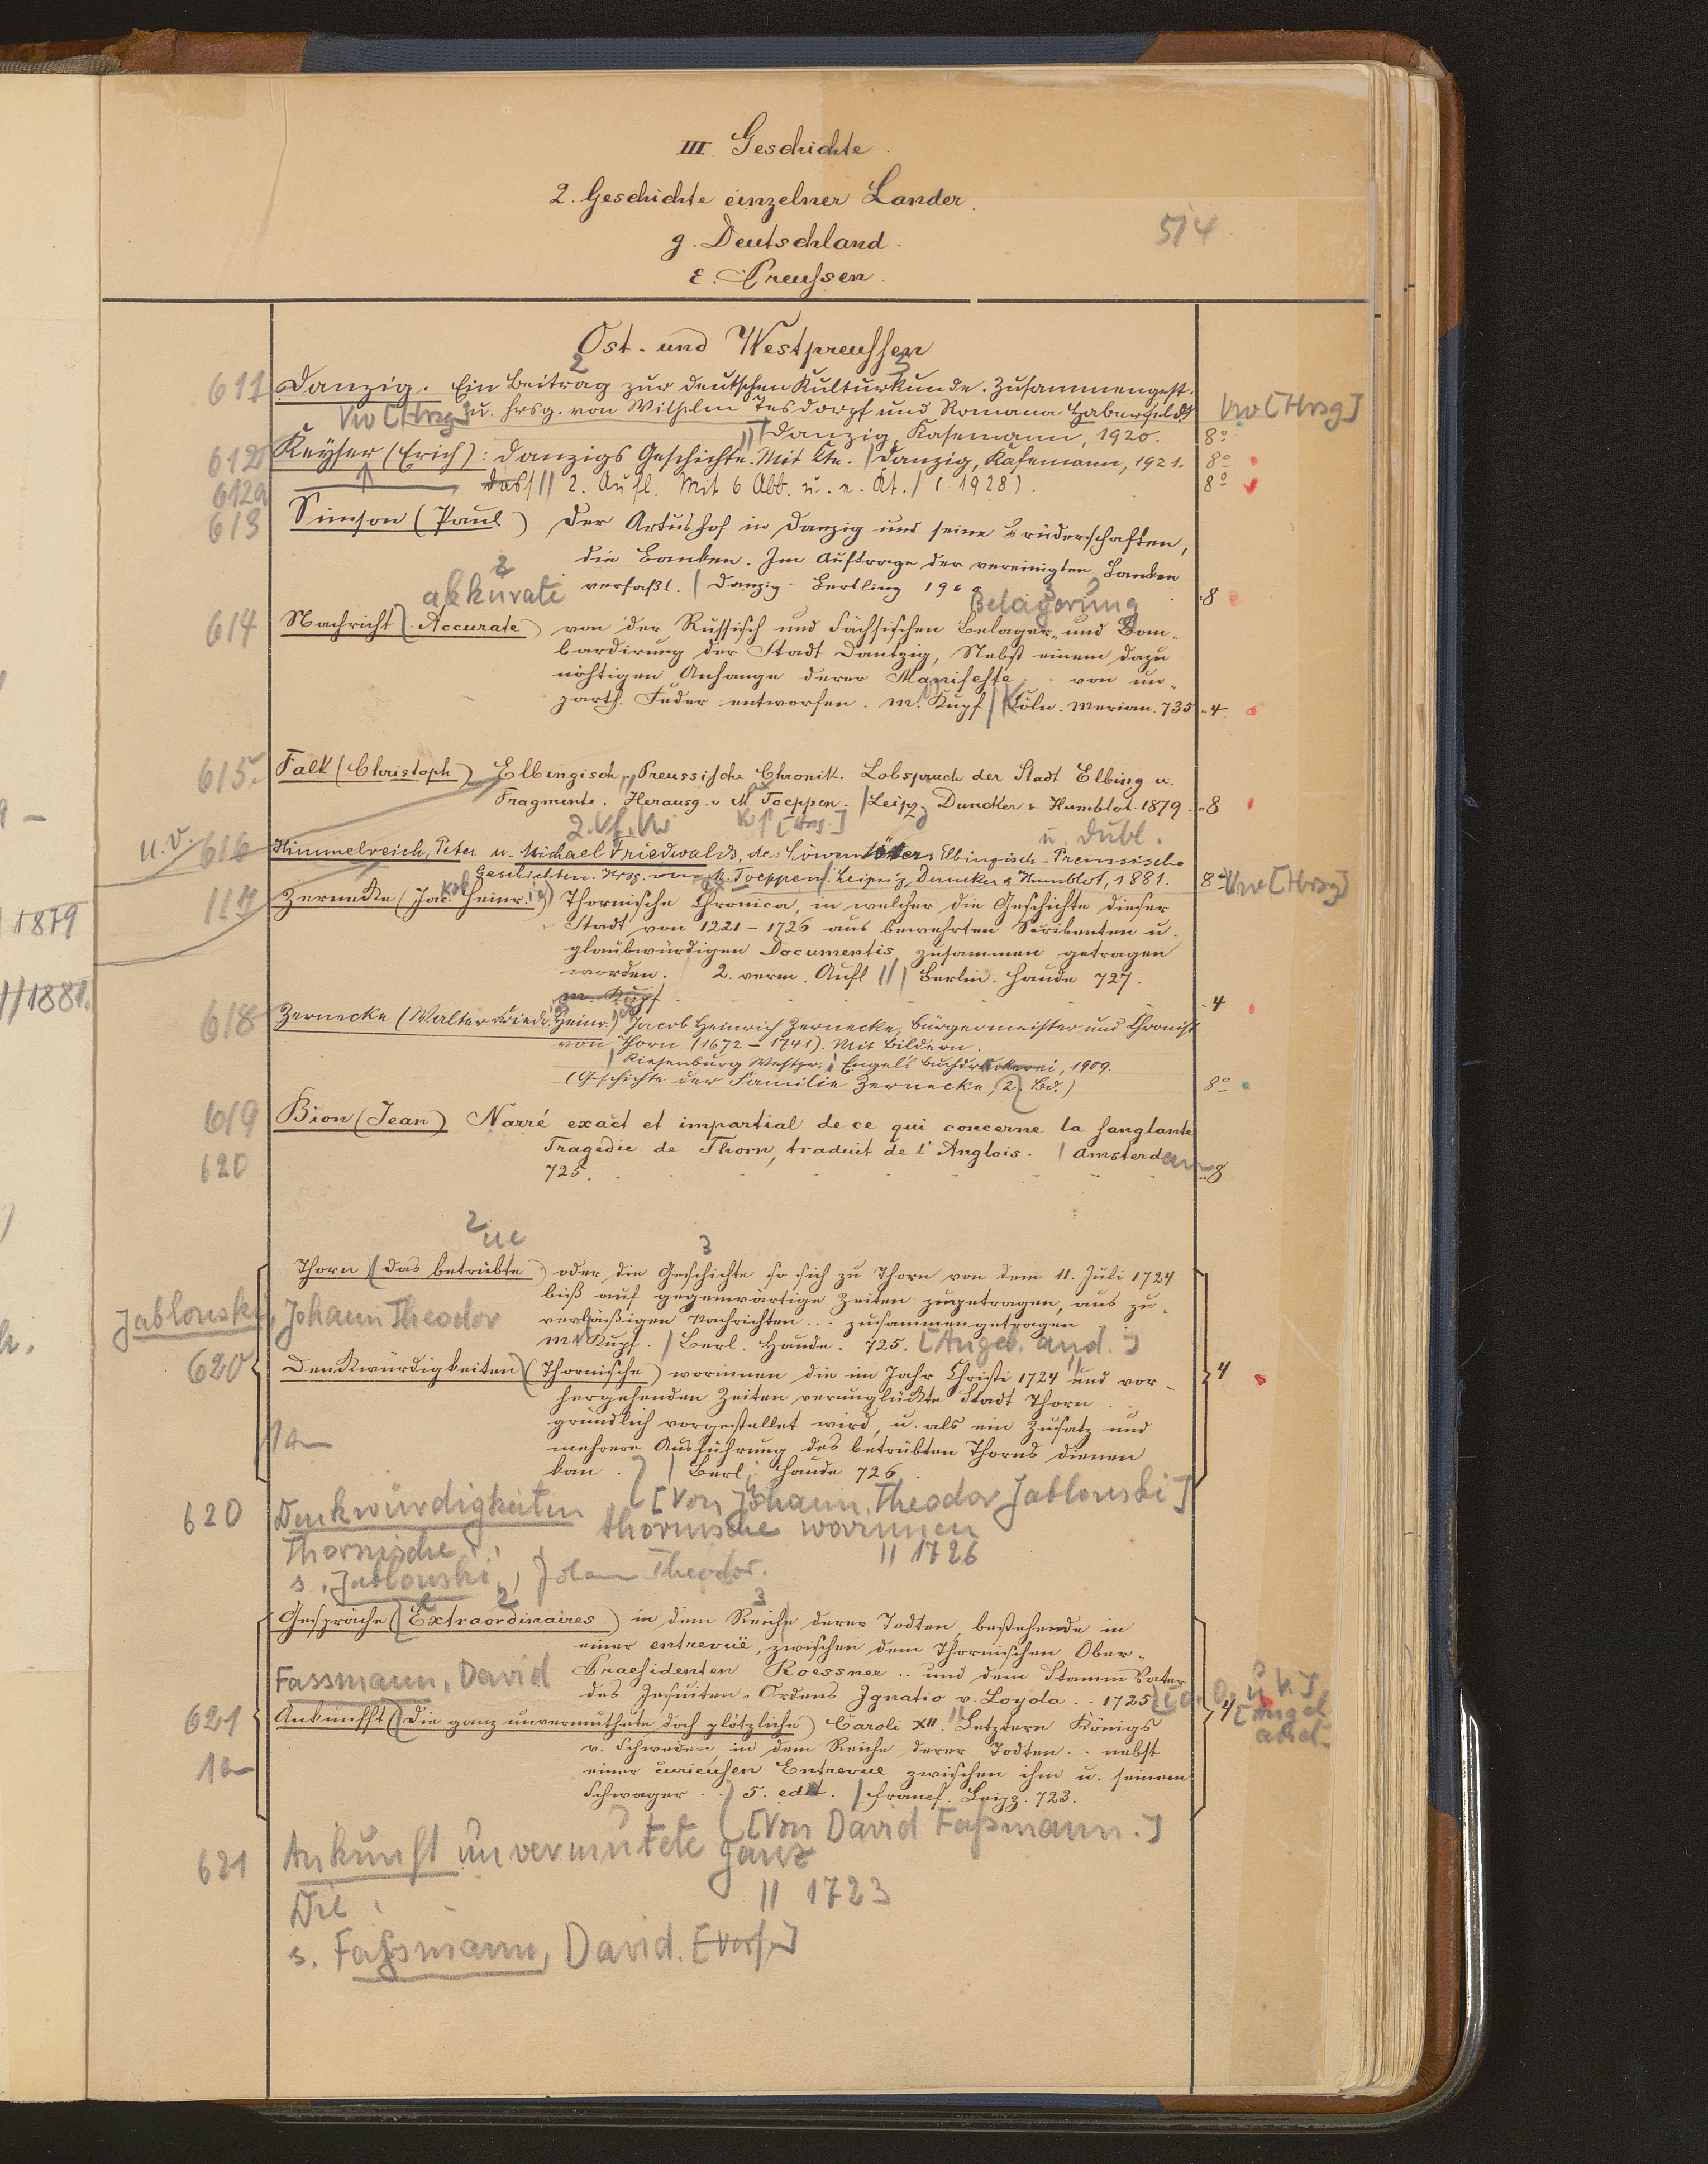 III. Geschichte.
2. Geschichte einzelner Länder.
g. Deutschland.
514
ε. Preussen.
Ost- und Westpreussen
611 Danzig. Ein Beitrag zur deutschen Kulturkunde. Zusammengest.
u. hrsg. von Wilhelm Tesdorpf und Romana Haberfeldt
Vw [Hrsg]
Vw [Hrsg]
Danzig, Kasemann, 1920. 8°
612 Keyser (Erich): Danzigs Geschichte. Mit Kte. / Danzig, Kafemann, 1921. 8°
612a das // 2. Aufl. Mit 6 Abb. u. e. Kt. / (1928). 8°
613 Simson (Paul) Der Artushof in Danzig und seine Brüderschaften,
die Banken. Im Auftrage der vereinigten Banken
verfaßt. / Danzig. Bertling 1900 8
2
akkurate
3
Belagerung
614 Nachricht (Accurate) von der Rüssisch und Sächsischen Belager- und Bom-
bardirung der Stadt Dantzig, Nebst einem dazu
nöhtigen Anhange derer Manifeste . . von un-
parth. Feder entworfen. m. Kupf / Köln. Merian. 735 4
615. Falk (Christoph) Elbingisch-Preussische Chronik. Lobspruch der Stadt Elbing u.
Fragmente. Herausg. v M Toeppen. / Leipz Duncker & Humblot. 1879. 8
2. Vf. Vw
[Hrsg.]
u. dubl.
u.V. 616 Himmelreich, Peter u. Michael Friedwald's, des Löwentöters Elbingisch-Preussische
Geschichten. Hrsg. von M. Toeppen / Leipzig, Duncker & Humblot, 1881. 8° Vw [Hrsg]
117 Zernecke (Jac. Heinr.) Thornische Chronica, in welcher die Geschichte dieser
Stadt von 1221 – 1726 aus bewehrten Scribenten u.
glaubwürdigen Documentis zusammen getragen
worden. 2. verm. Aufl // / Berlin. Haude 727.
m. Kupf 4
618 Zernecke (Walter Friedr. Heinr.) Jacob Heinrich Zernecke, Bürgermeister und Chronist
von Thorn (1672 – 1741). Mit Bildern.
/ Riesenburg Westpr.: Engel's Buchdruckerei, 1909.
(Geschichte der Familie Zernecke, 2. Bd.) 8°
619 Bion (Jean) Narré exact et impartial de ce qui concerne la sanglante
Tragedie de Thorn, traduit de l'Anglois. / Amsterdam
620
725. 8
2
ue
3
Thorn (das betrübte) oder die Geschichte so sich zu Thorn von dem 11. Juli 1724
biß auf gegenwärtige Zeiten zugetragen, aus zu-
Jablonski, Johann Theodor
verläßigen Nachrichten . . . zusammengetragen
m Kupf. / Berl. Haude. 725. [Angeb. and.]
620 Denkwürdigkeiten (Thornische) worinnen die im Jahr Christi 1724 und vor-
hergehenden Zeiten verunglückte Stadt Thorn . .
gründlich vorgestellet wird, u. als ein Zusatz und
mehrere Ausführung des betrübten Thorns dienen
kan. / Berl. Haude 726. 4
1a
[Von Johann Theodor Jablonski]
620 Denkwürdigkeiten thornische worinnen
Thornische . .
// 1726
s. Jablonski, Johann Theodor.
2
3
Gespräche (Extraordinaires) in dem Reiche derer Todten, bestehende in
einer entrevuë, zwischen dem Thornischen Ober-
Fassmann, David
Praesidenten Roessner . . und dem Stamm Vater
des Jesuiten-Ordens Ignatio v. Loyola . . 1725 [o. O. u V.]
621 Ankunfft (Die ganz unvermuthete doch plötzliche) Caroli XII. Letztern Königs
v. Schweden, in dem Reiche derer Todten . . nebst
1a
einer curieusen Entrevue zwischen ihm u. seinem
Schwager . . 5. edit. / Francf. Leipz. 723.
4
[Von David Faßmann.]
621 Ankunft unvermutete ganz
Die
// 1723
s. Faßmann, David. [Verf.]
1879
// 1881.